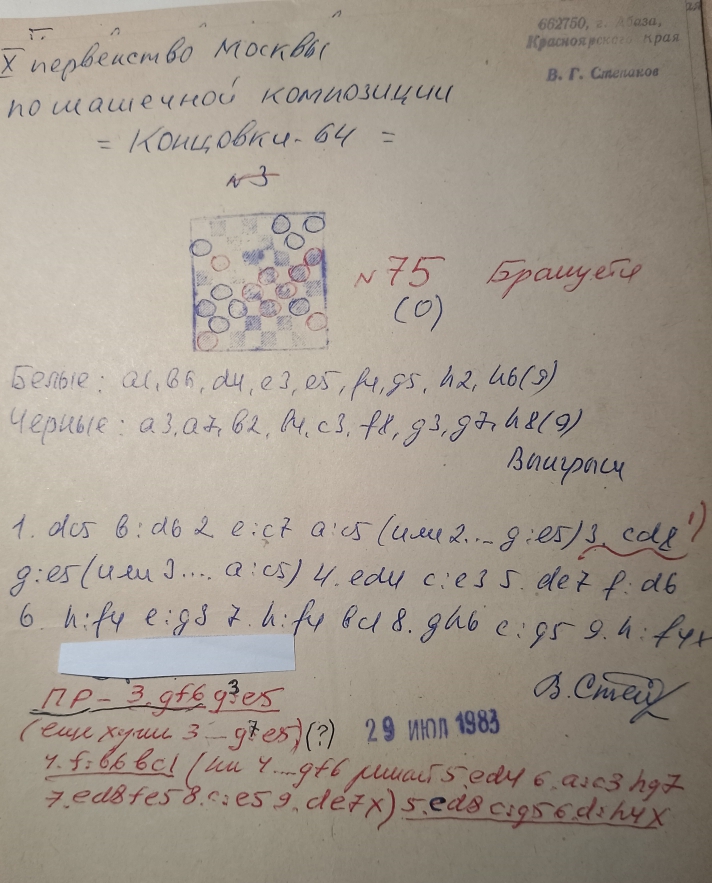 662750, г. Абаза,
Красноярского края
В. Г. Степаков
X первенство Москвы
по шашечной композиции
= Концовки-64 =
N3
N75 Бракуется
(0)
Белые: a1, b6, d4, e3, e5, f4, g5, h2, h6 (9)
Черные: a3, a7, b2, b4, c3, f8, g3, g7, h8 (9)
Выигрыш
1. dc5 b:d6 2. e:c7 a:c5 (или 2... g:e5) 3. cd8 1)
g:e5 (или 3.... a:c5) 4. ed4 c:e3 5. de7 f:d6
6. h:f4 e:g3 7. h:f4 bc1 8. gh6 c:g5 9. h:f4x
ПР - 3. gf6 g3:e5
(еще хуже 3... g7e5) (?)
29 ИЮЛ 1983
4. f:b6 bc1 (на 4....gf6 решает 5. ed4 6. a:c3 hg7
7. ed8 fe5 8. c:e5 9. de7x) 5. ed8 c:g5 6. d:h4x